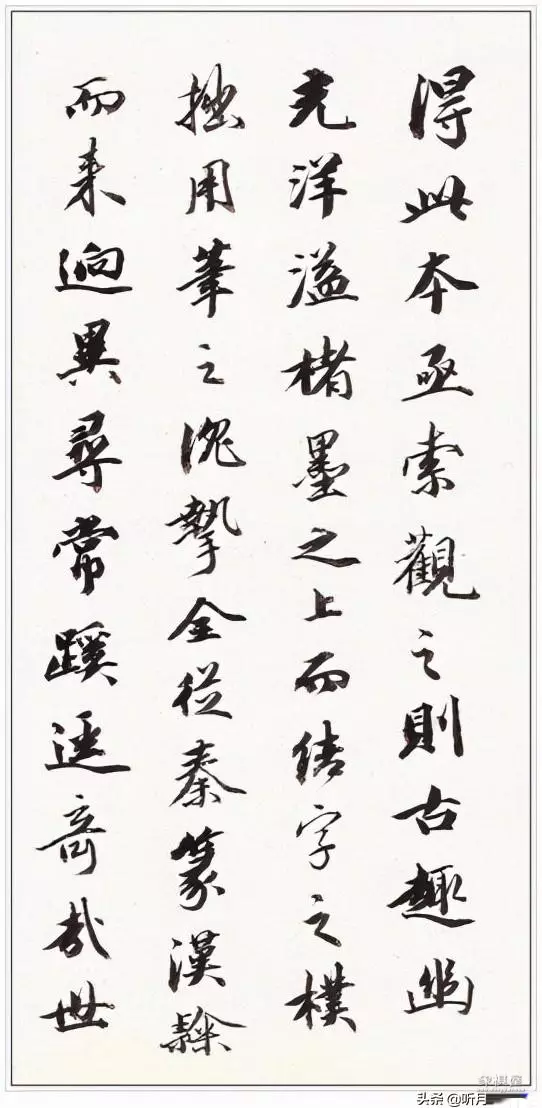 得此本亟索觀之則古趣幽
光洋溢楮墨之上而結字之樸
拙用筆之沈摯全從秦篆漢隸
而来迥異尋常蹊逕奇哉世
头条 @听月